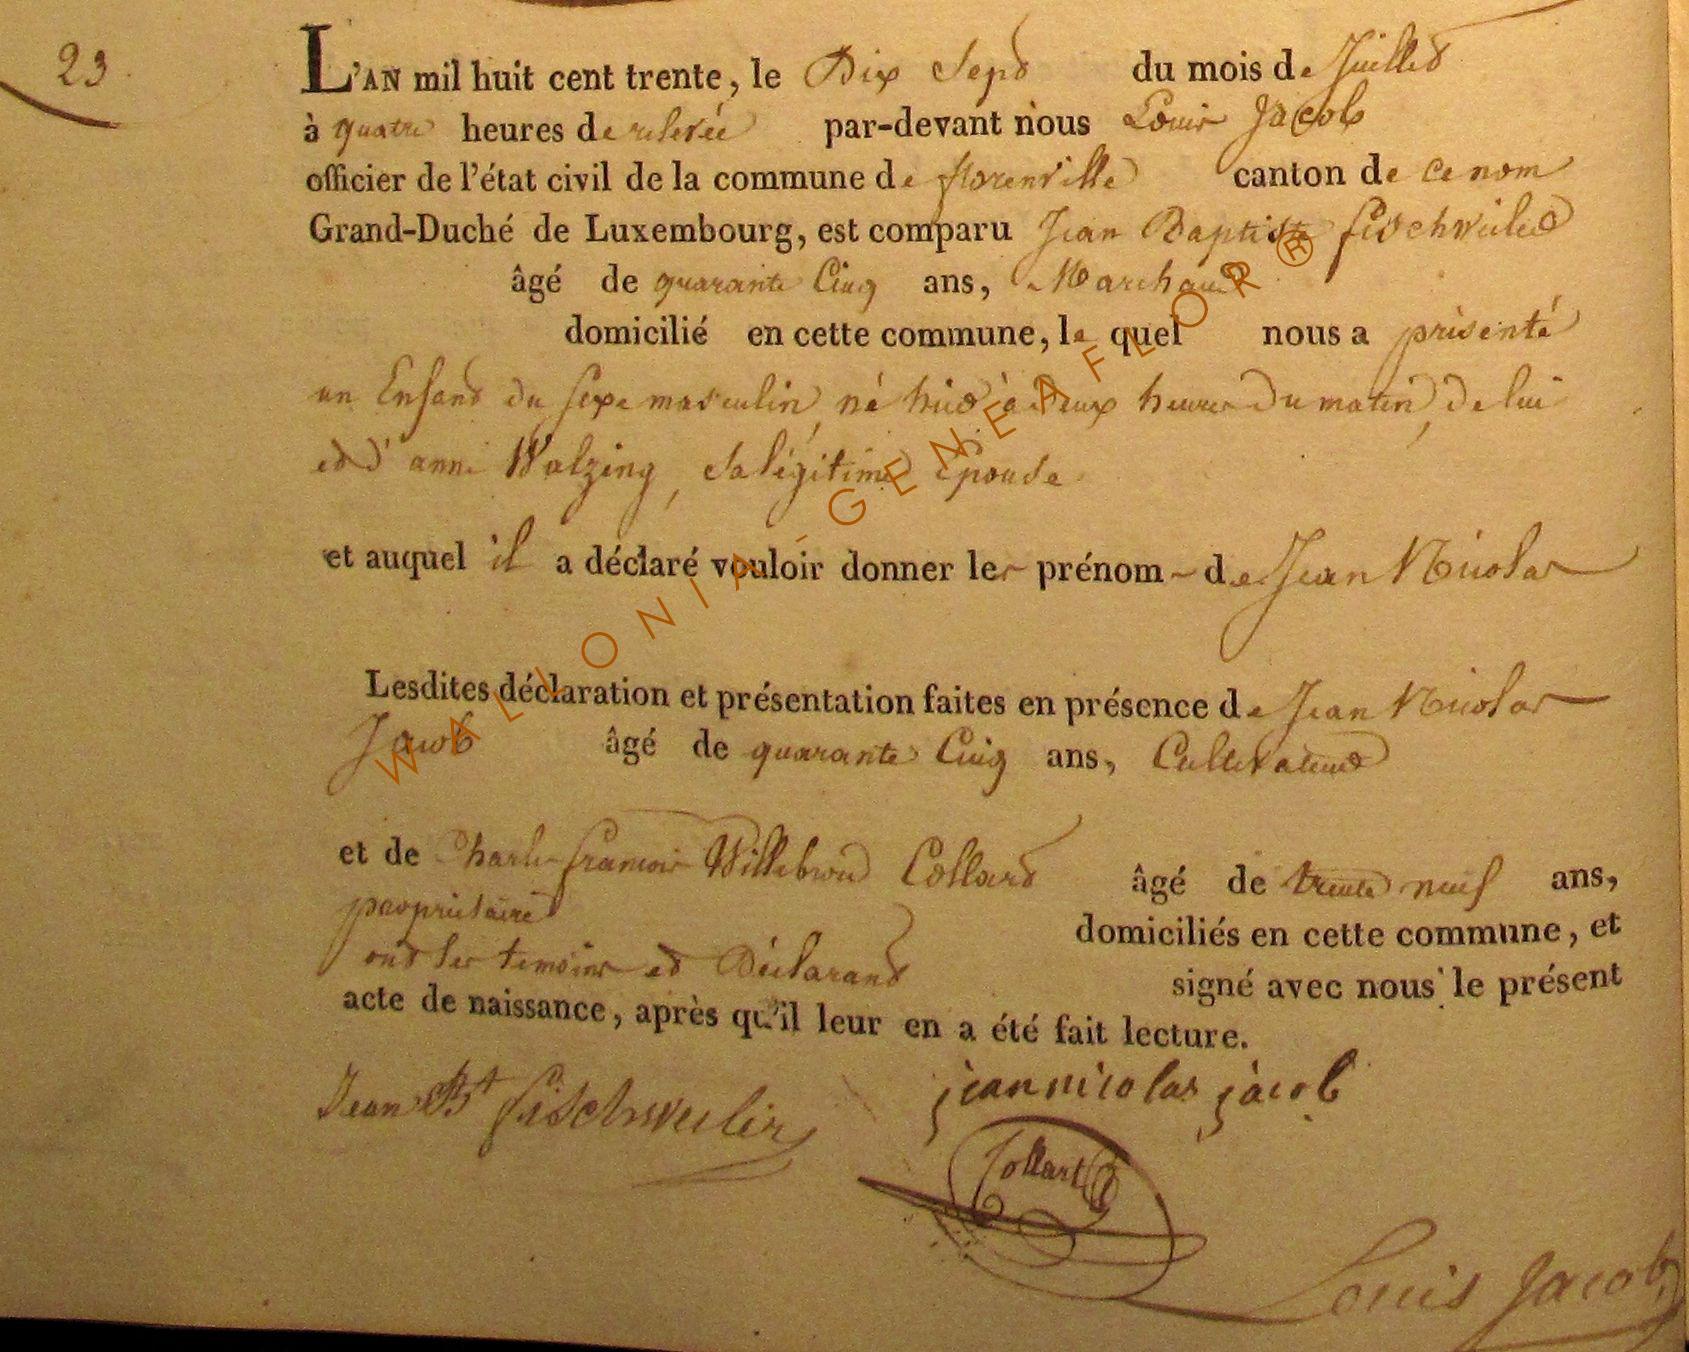 23
L'AN mil huit cent trente, le Dix Sept du mois de Juillet
à quatre heures de relevée par-devant nous Louis Jacob
officier de l'état civil de la commune de florenville canton de ce nom
Grand-Duché de Luxembourg, est comparu Jean Baptiste fischweiler
âgé de quarante Cinq ans, Marchand
domicilié en cette commune, le quel nous a présenté
un Enfant du sexe masculin, né hier à deux heures du matin, de lui
et d'anne Walzing, sa légitime épouse
et auquel il a déclaré vouloir donner les prénom - de Jean Nicolas
Lesdites déclaration et présentation faites en présence de Jean Nicolas
Jacob âgé de quarante Cinq ans, Cultivateur
et de Charles francois Willebrord Collard âgé de trente neuf ans,
propriétaire
domiciliés en cette commune, et
ont les temoins et Déclarant signé avec nous le présent
acte de naissance, après qu'il leur en a été fait lecture.
Jean Bt fischweiler
jean nicolas jacob
Collart
Louis Jacob
WALLONIA - GENEAFLOR ®